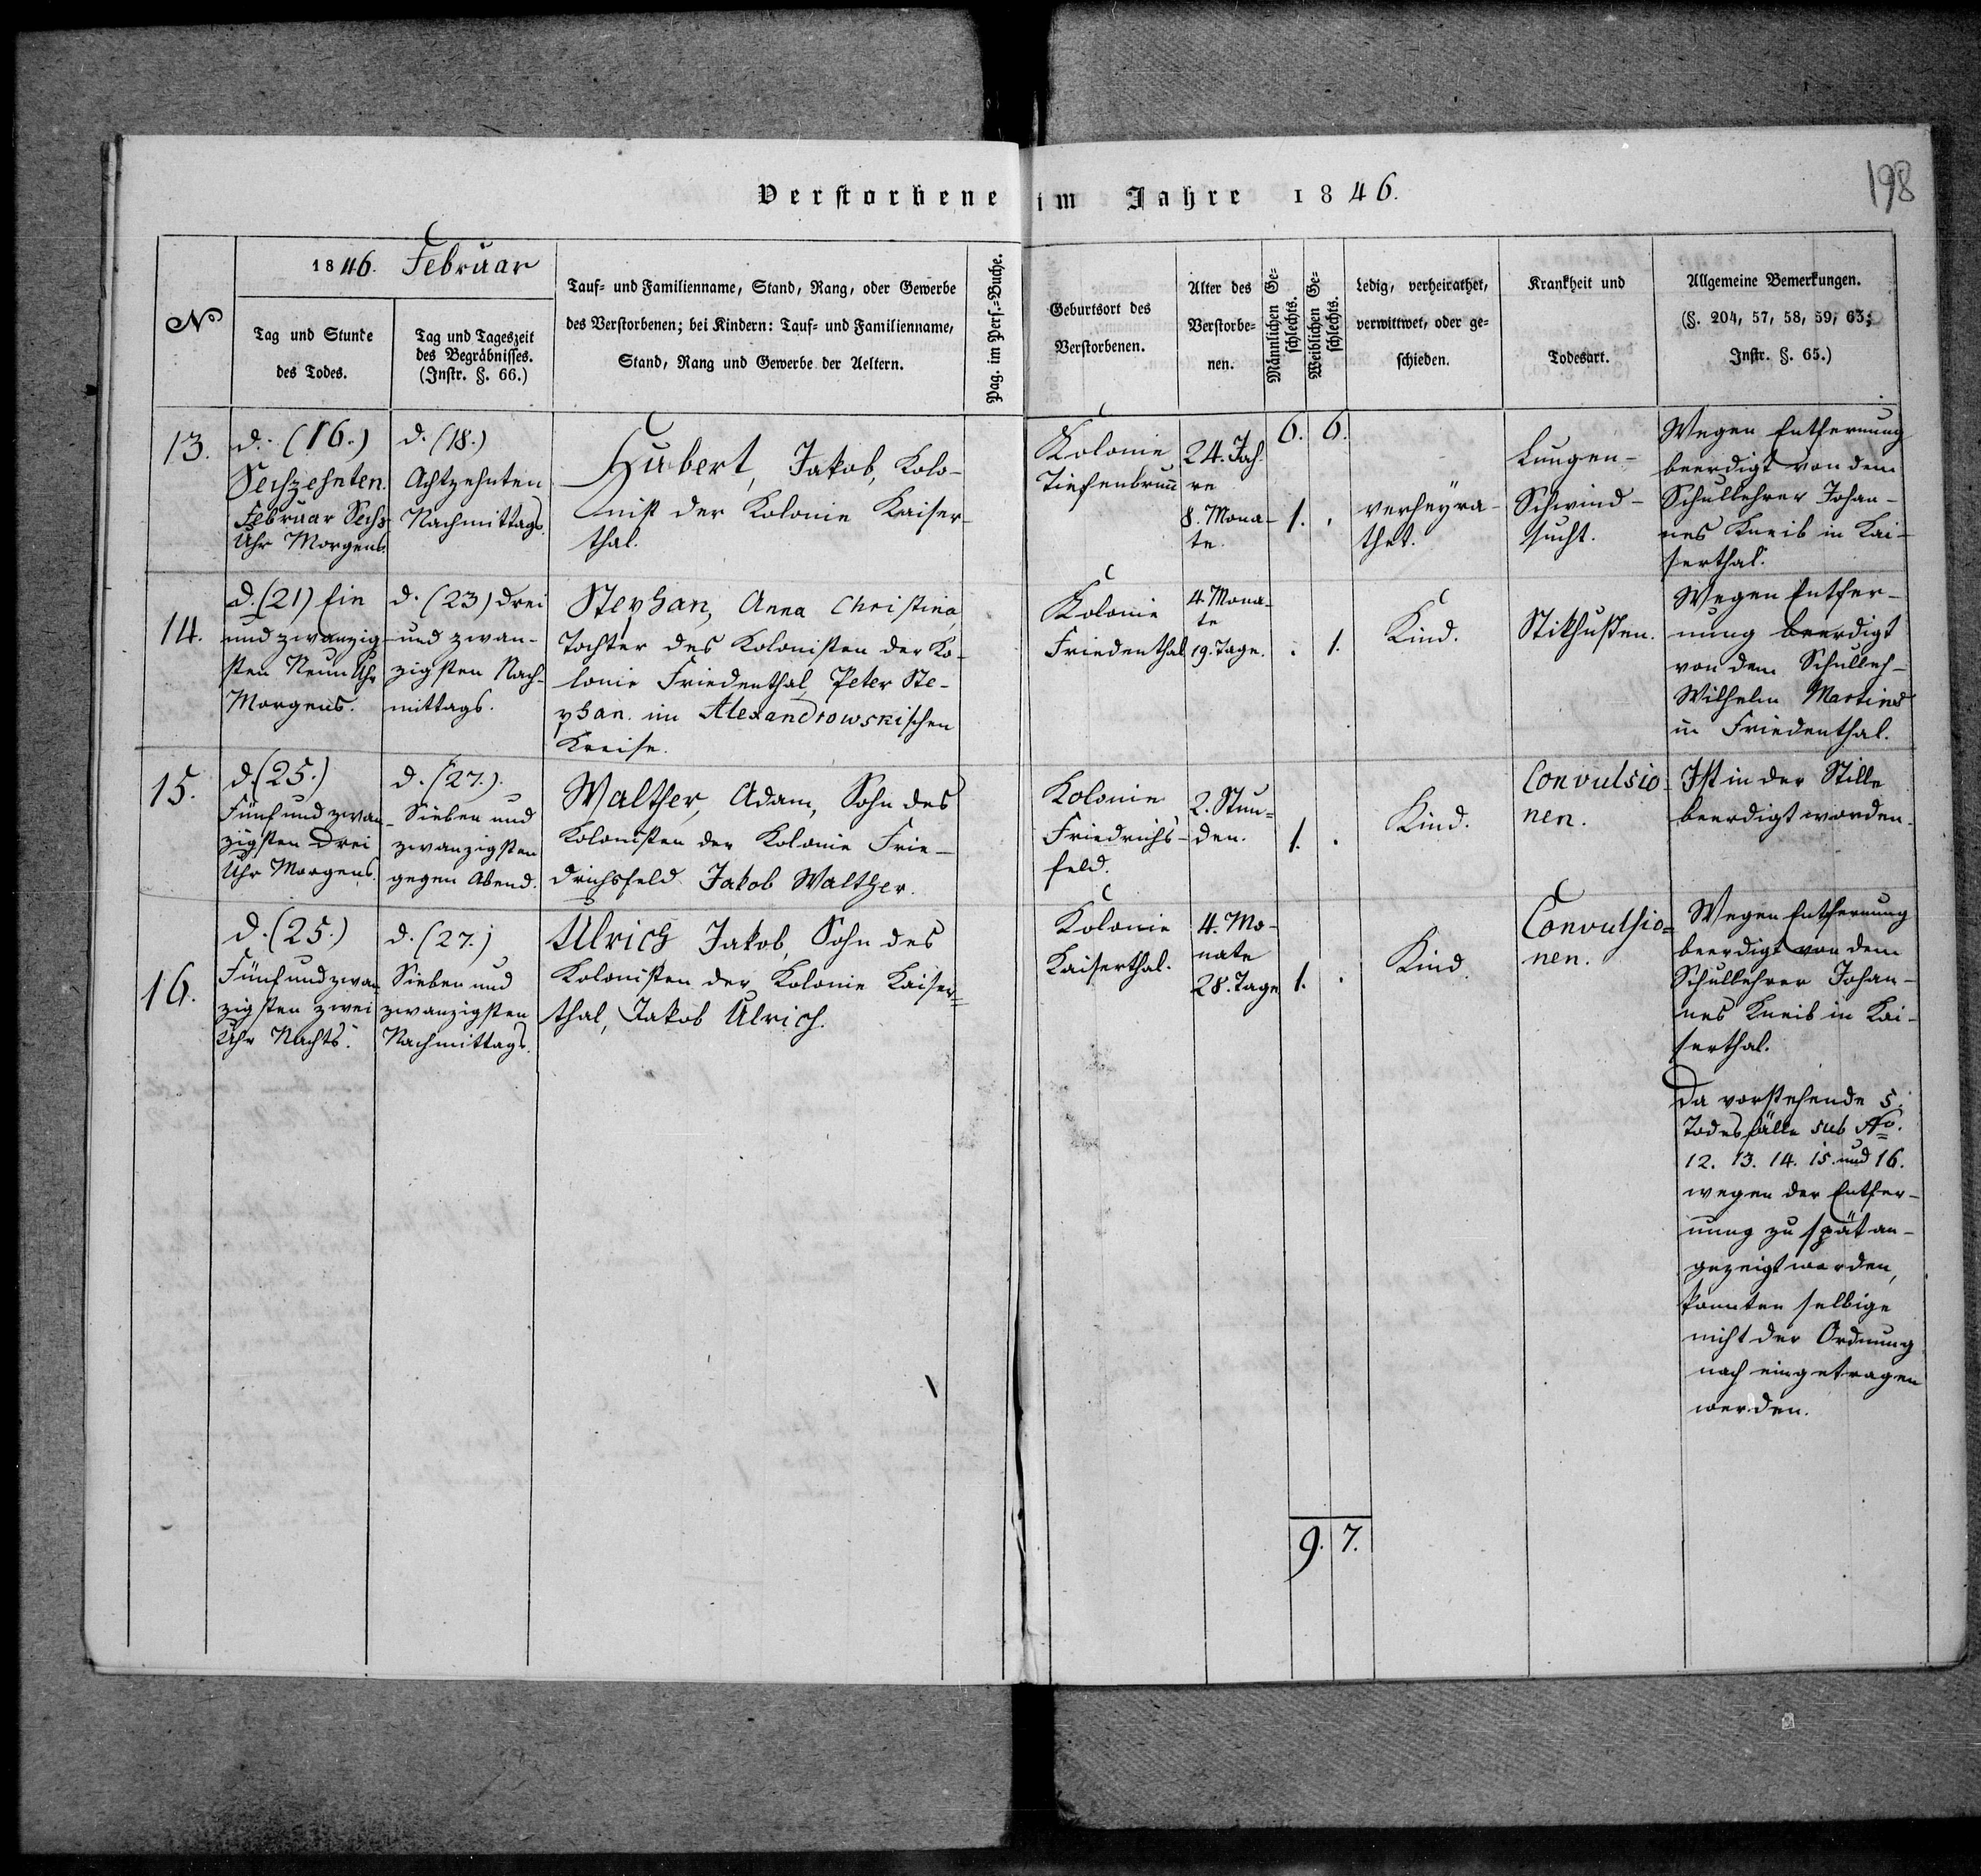 198
Verstorbene im Jahre 1846.
No
1846. Februar
Tag und Stunde
des Todes.
Tag und Tageszeit
des Begräbnisses.
(Instr. §. 66.)
Tauf- und Familienname, Stand, Rang, oder Gewerbe
des Verstorbenen; bei Kindern: Tauf- und Familienname,
Stand, Rang und Gewerbe der Aeltern.
Pag. im Pers.-Buche.
Geburtsort des
Verstorbenen.
Alter des
Verstorbe-
nen.
Männlichen Ge-
schlechts.
Weiblichen Ge-
schlechts.
Ledig, verheirathet,
verwittwet, oder ge-
schieden.
Krankheit und
Todesart.
Allgemeine Bemerkungen.
(§. 204, 57, 58, 59, 63;
Instr. §. 65.)
6. 6.
13.
d. (16.)
Sechzehnten
Februar Sechs
Uhr Morgens.
d. (18.)
Achtzehnten
Nachmittags.
Hubert, Jakob, Kolo-
nist der Kolonie Kaiser-
thal.
Kolonie
Tiefenbrunn
24. Jah-
re
8. Mona-
te.
1. .
verheyra-
thet.
Lungen-
Schwind-
sucht.
Wegen Entfernung
beerdigt von dem
Schullehrer Johan-
nes Kneib in Kai-
serthal.
14.
d. (21) Ein
und zwanzig-
sten Neun Uhr
Morgens.
d. (23) drei
und zwan-
zigsten Nach-
mittags.
Stephan, Anna Christina,
Tochter des Kolonisten der Ko-
lonie Friedenthal, Peter Ste-
phan. im Alexandrowskischen
Kreise.
Kolonie
Friedenthal
4. Mona-
te
19. Tage.
. 1.
Kind.
Stikhusten.
Wegen Entfer-
nung beerdigt
von dem Schulleh-
Wilhelm Martins
in Friedenthal.
15.
d. (25.)
Fünf und zwan-
zigsten Drei
Uhr Morgens.
d. (27.).
Sieben und
zwanzigsten
gegen Abend.
Walther, Adam, Sohn des
Kolonisten der Kolonie Frie-
drichsfeld Jakob Walther.
Kolonie
Friedrichs-
feld.
2. Stun-
den.
1. .
Kind.
Convulsio-
nen.
Ist in der Stille
beerdigt worden.
16.
d. (25.)
Fünf und zwan-
zigsten zwei
Uhr Nachts.
d. (27.)
Sieben und
zwanzigsten
Nachmittags.
Ulrich Jakob, Sohn des
Kolonisten der Kolonie Kaiser=
thal, Jakob Ulrich.
Kolonie
Kaiserthal.
4. Mo-
nate
28. Tage
1. .
Kind.
Convulsio=
nen.
Wegen Entfernung
beerdigt von dem
Schullehrer Johan-
nes Kneib in Kai-
serthal.
Da vorstehende 5.
Todesfälle sub No.
12. 13. 14. 15. und 16.
wegen der Entfer-
nung zu spät an-
gezeigt worden,
konnten selbige
nicht der Ordnung
nach eingetragen
werden.
9. 7.